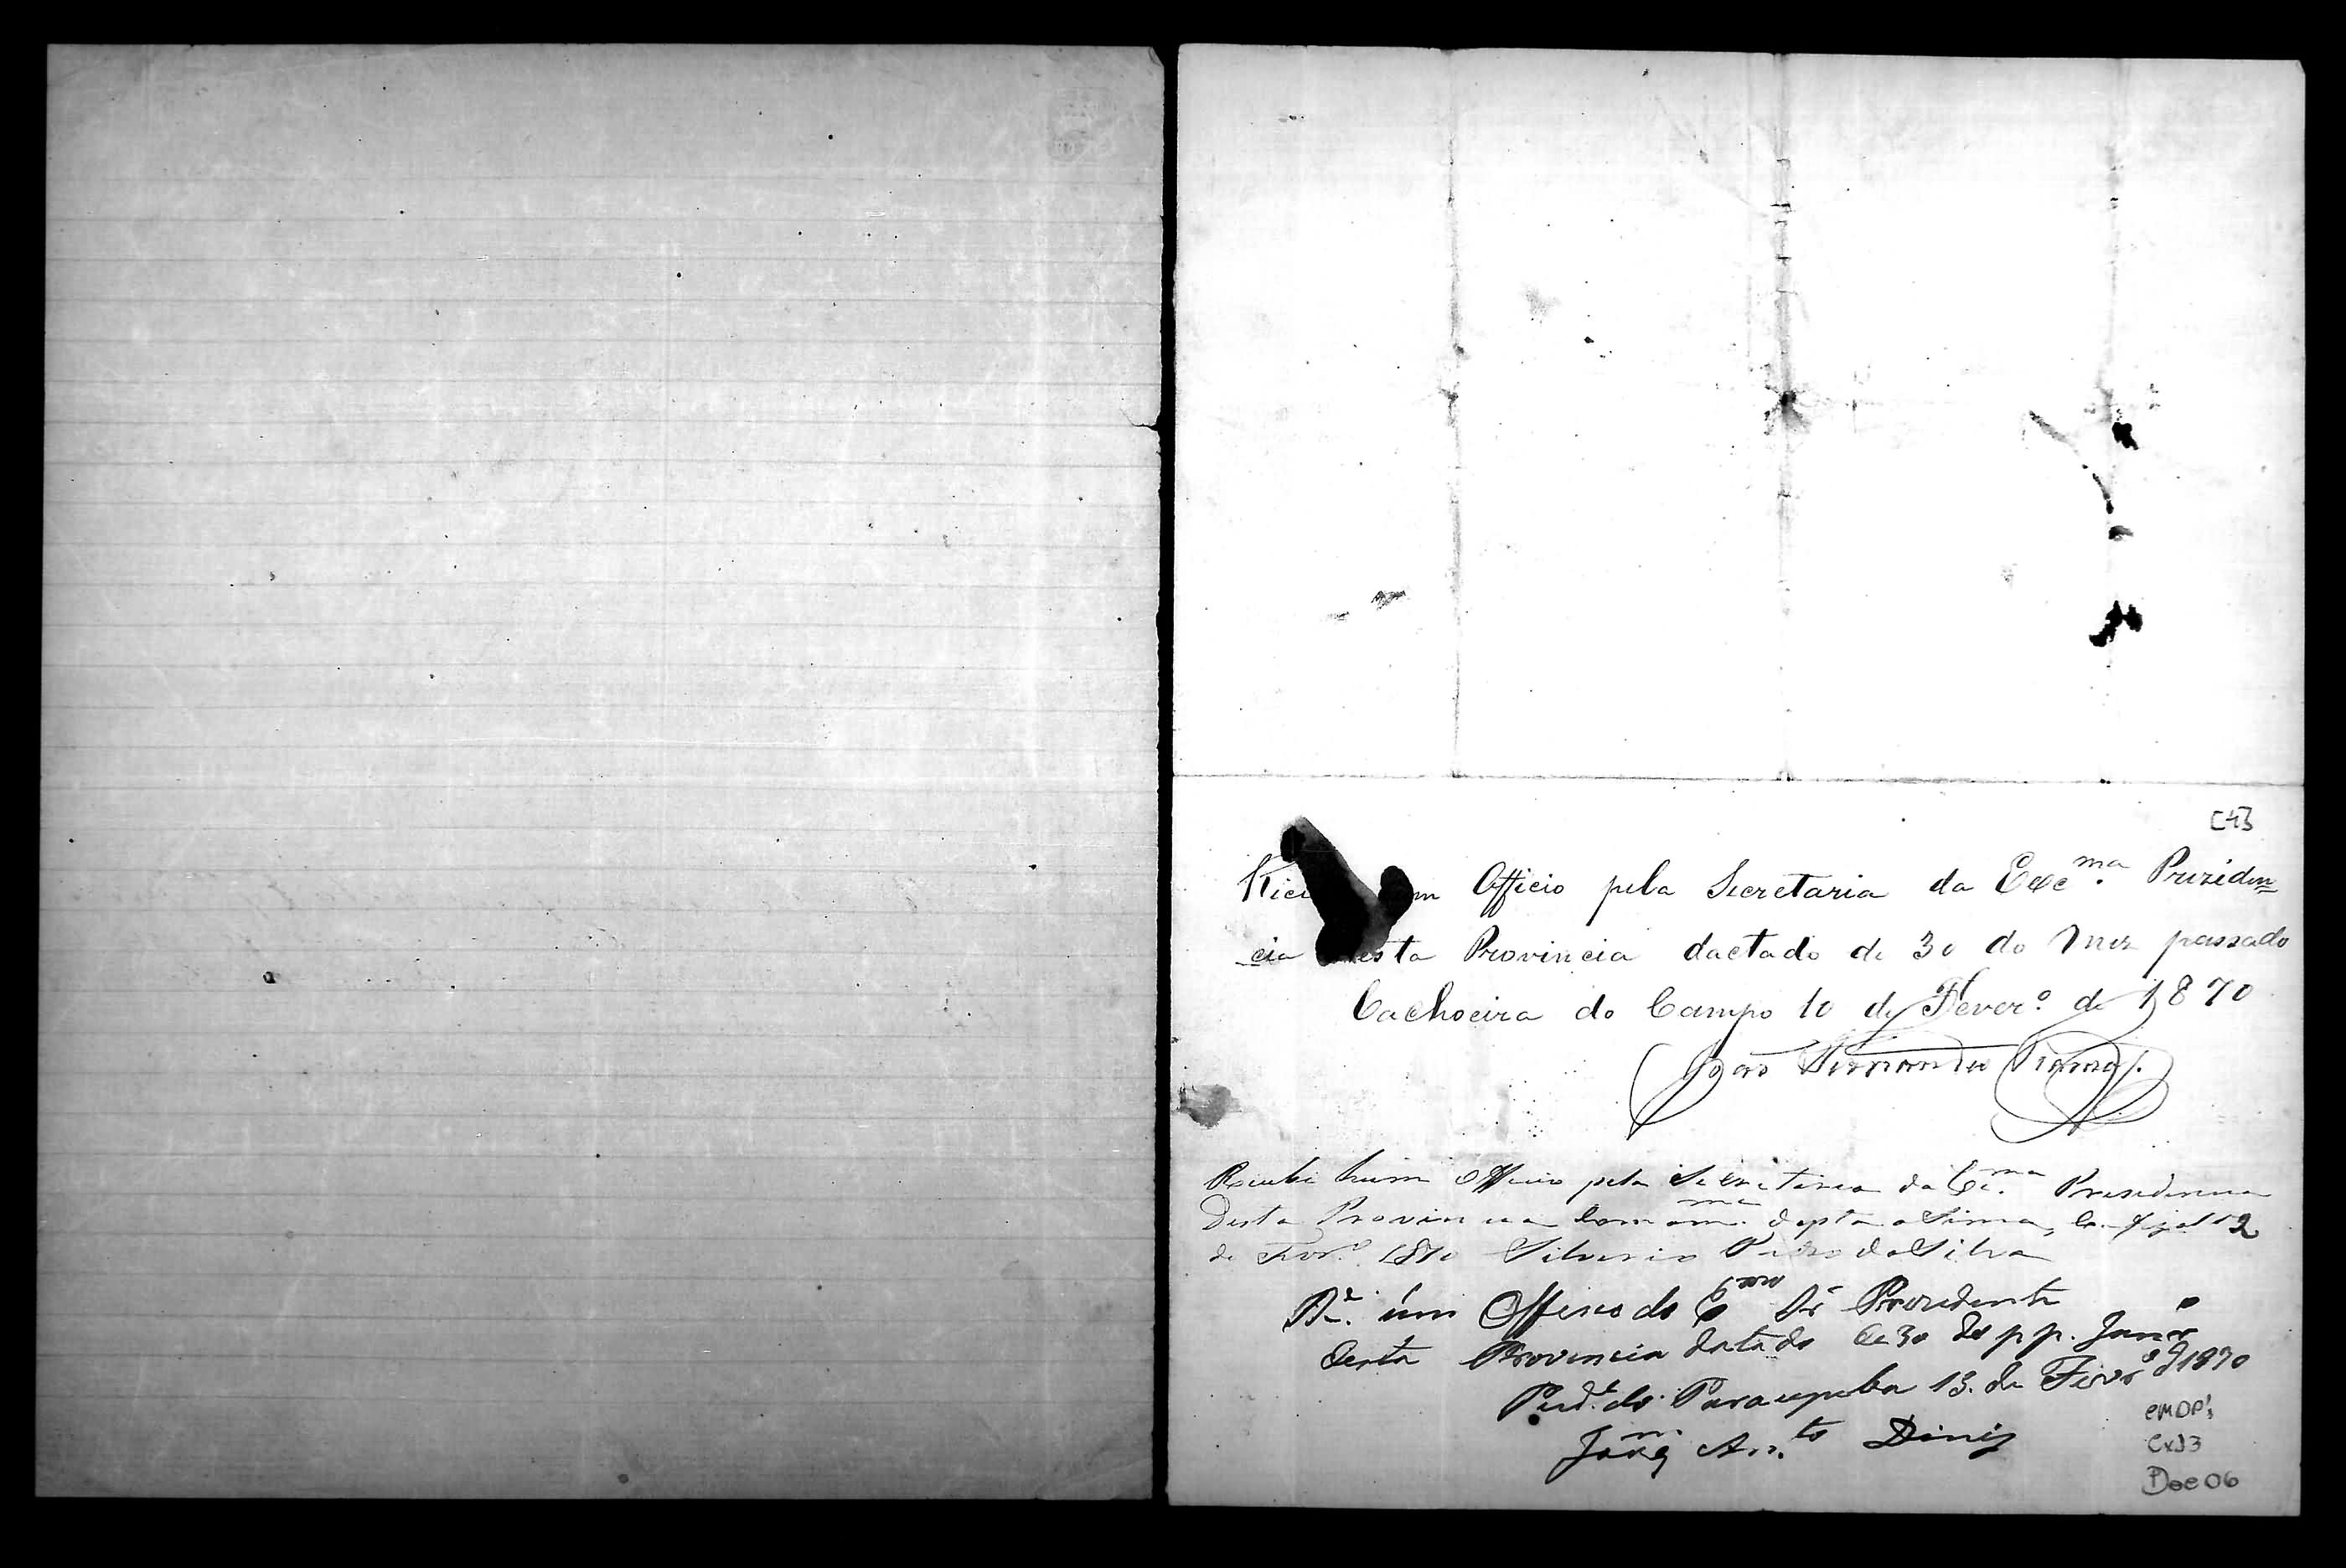 [43]
Offficio pela Secretaria da Exc.ma Preziden=
=cia Provincia dactado de 30 do Mez passado
Cachoeira do Campo 10 de Fever.o de 1870
João Fernandes
Recebi hum Officio pela Secretaria da Presidencia
Desta Provincia Com 12
de Fevr.o 1870 Silverio Pedro da Silva
R.e um Officio do Ex.mo Sr Presidente
desta Provincia datado de 30 do p p. Janr.o
Pied.e do Paraupeba 13 de Fevr.o d 1870
An.to Diniz
CMOP's
Cx 13
Doc 06